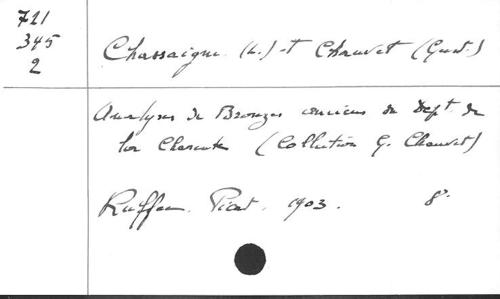 721
345
2
Chassaigne (A.) et Chauvet (Gust.)
Analyses de Bronzes anciens du Dept. de
la Charente (Collection G. Chauvet)
Ruffec. Picat. 1903. 8°.